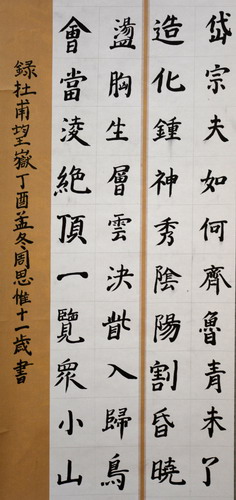 岱宗夫如何齊魯青未了
造化鍾神秀陰陽割昏曉
盪胸生層雲決眥入歸鳥
會當淩絕頂一覽眾小山
錄杜甫望嶽丁酉孟冬周思惟十一歲書